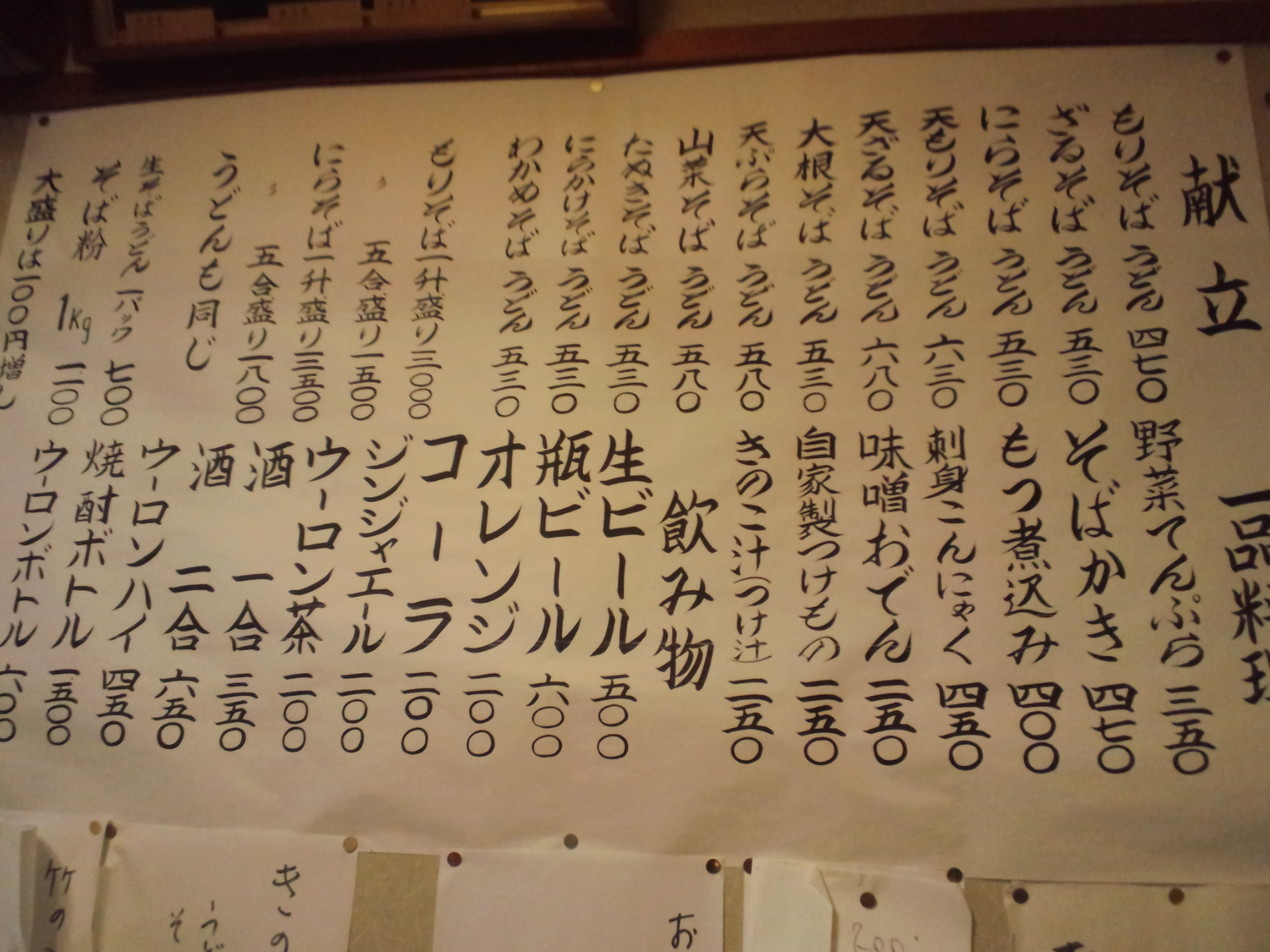 献立
もりそば うどん 四七〇
ざるそば うどん 五三〇
にらそば うどん 五三〇
天もりそば うどん 六三〇
天ざるそば うどん 六八〇
大根そば うどん 五三〇
天ぷらそば うどん 五八〇
山菜そば うどん 五八〇
たぬきそば うどん 五三〇
にらかけそば うどん 五三〇
わかめそば うどん 五三〇
もりそば一升盛り 三〇〇〇
〃 五合盛り 一五〇〇
にらそば一升盛り 三五〇〇
〃 五合盛り 一八〇〇
うどんも同じ
生そばうどん 一パック 七〇〇
そば粉 1kg 一二〇〇
大盛りは一〇〇円増し
一品料理
野菜てんぷら 三五〇
そばかき 四七〇
もつ煮込み 四〇〇
刺身こんにゃく 四五〇
味噌おでん 二五〇
自家製つけもの 二五〇
きのこ汁(つけ汁) 二五〇
飲み物
生ビール 五〇〇
瓶ビール 六〇〇
オレンジ 二〇〇
コーラ 二〇〇
ジンジャエール 二〇〇
ウーロン茶 二〇〇
酒 一合 三五〇
酒 二合 六五〇
ウーロンハイ 四五〇
焼酎ボトル 一五〇〇
ウーロンボトル 六〇〇
お
きの
うど
そ
竹の